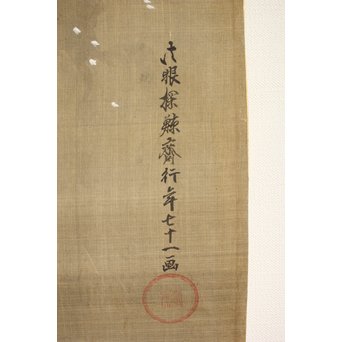 法眼探鯨齋行年七十一画